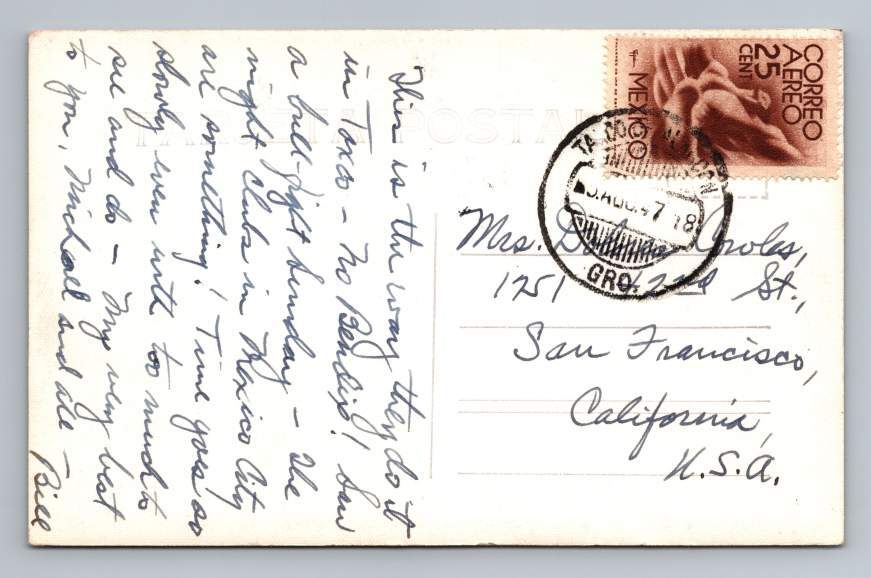 This is the way they do it
in Taxco - No Bendix! Saw
a bull-fight Sunday - The
night clubs in Mexico City
are something! Time goes so
slowly even with too much to
see and do - My very best
to you, Michael and all -
Bill
TARJETA POSTAL
CORREO
AEREO
25
CENT
MEXICO
TAXCO DE ALARCON
AGO. 47 18
GRO.
Mrs.
1251 42nd St.,
San Francisco,
California,
U.S.A.